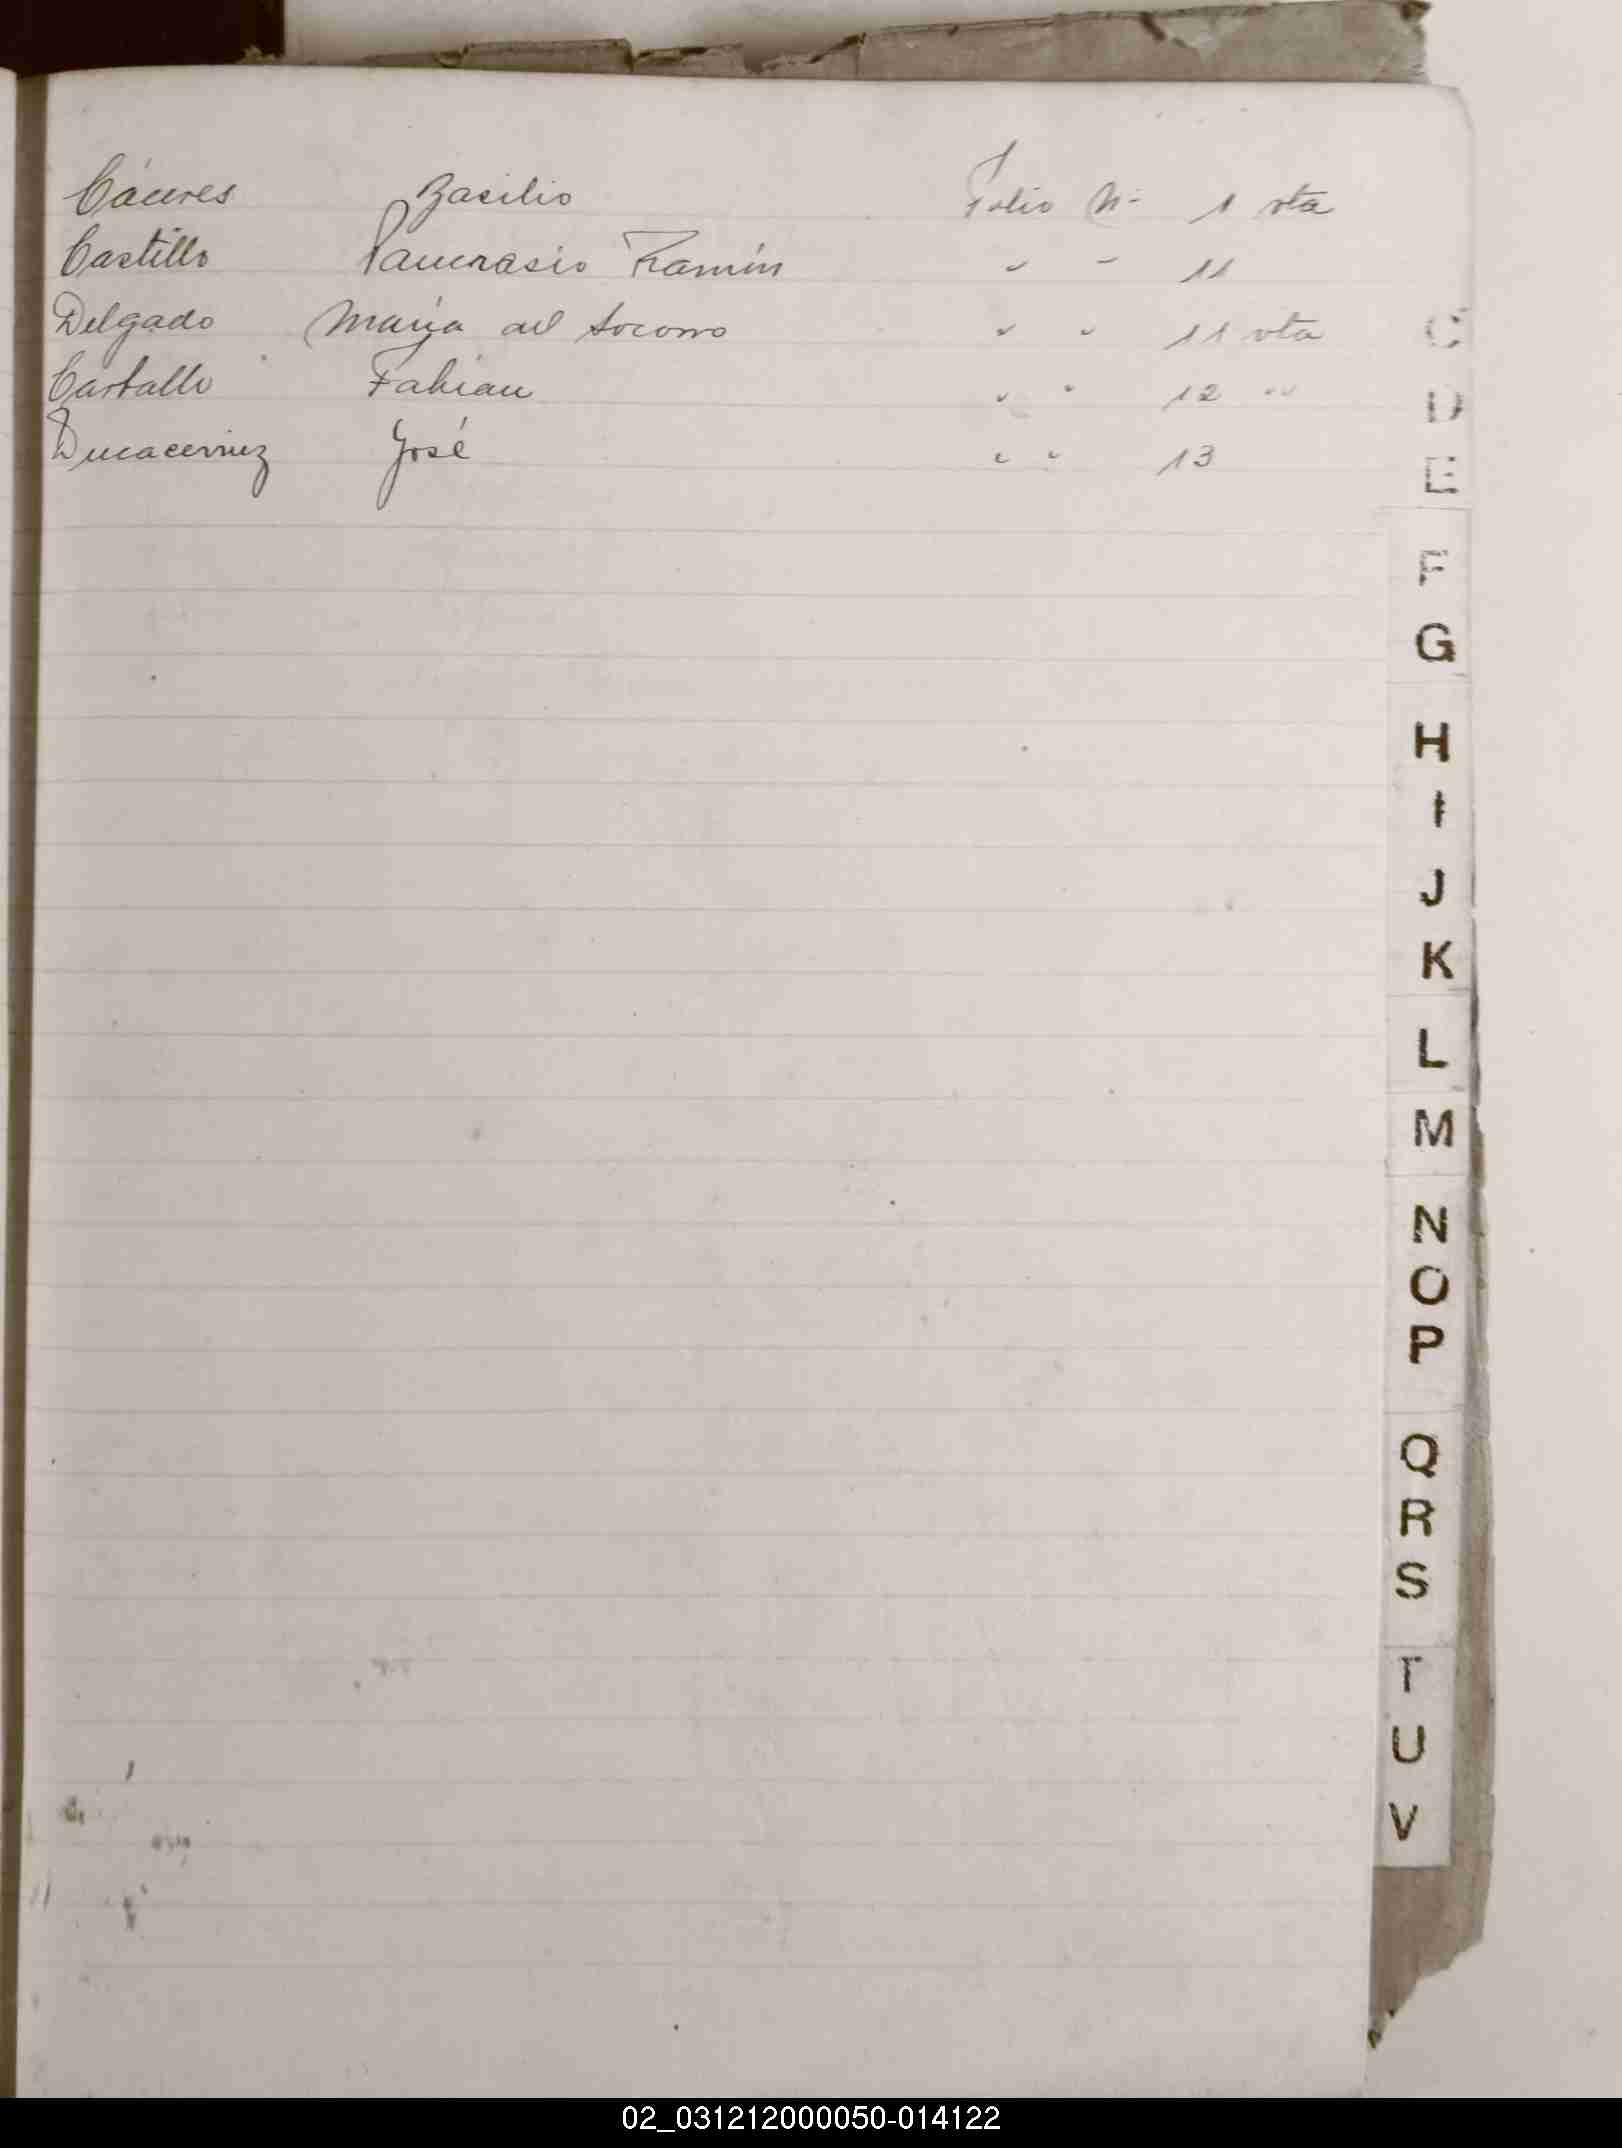 Cáceres Basilio Folio Nº 1 vta
Castillo Pancrasio Ramón " " 11
Delgado María del Socorro " " 11 vta
Carballo Fabian " " 12 "
José " " 13
C
D
E
F
G
H
I
J
K
L
M
N
O
P
Q
R
S
T
U
V
02_031212000050-014122